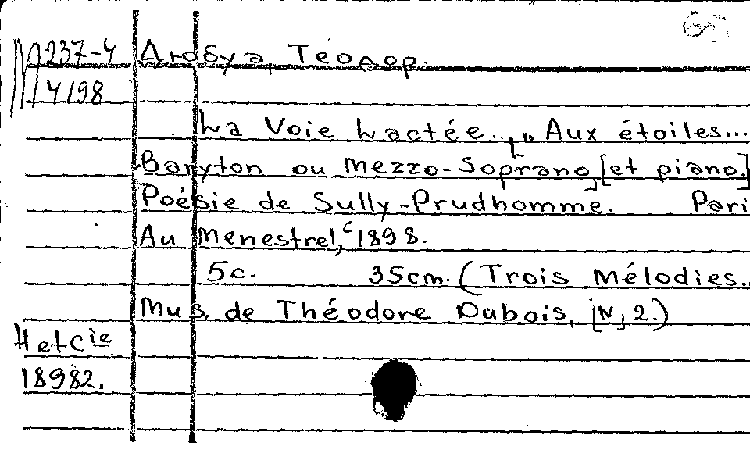 М 237-4
4198
Дюбуа, Теодор.
La Voie Lactée... „Aux étoiles...
Baryton ou Mezzo-Soprano, [et piano]
Poésie de Sully-Prudhomme. Pari
Au Menestrel, c1898.
5c. 35cm. (Trois Mélodies.
Mus. de Théodore Dubois, [N, 2.)
H et Cie
18982.